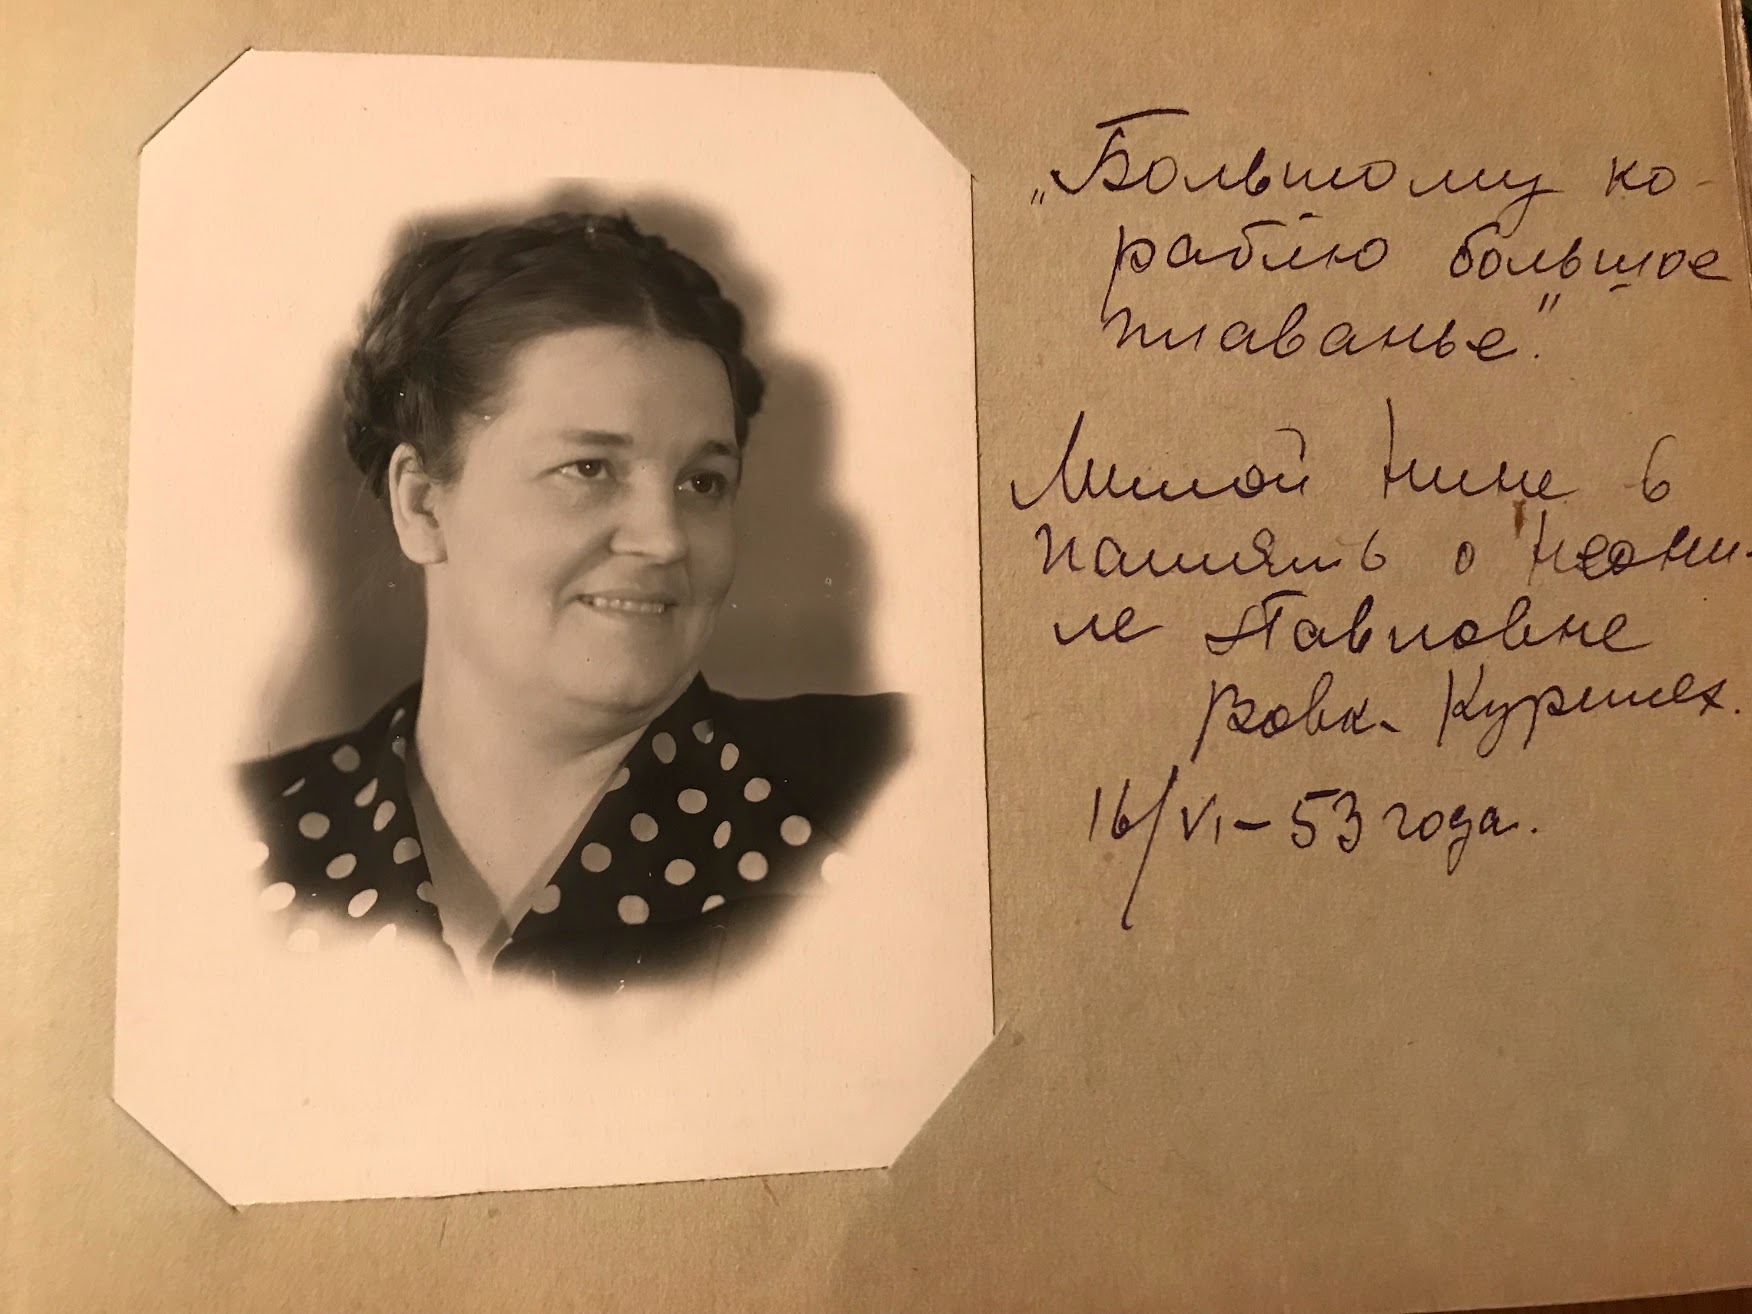 „Большому ко-
раблю большое
плаванье."
Милой Нине в
память о Неони-
ле Павловне
Вовк-
16/VI – 53 года.